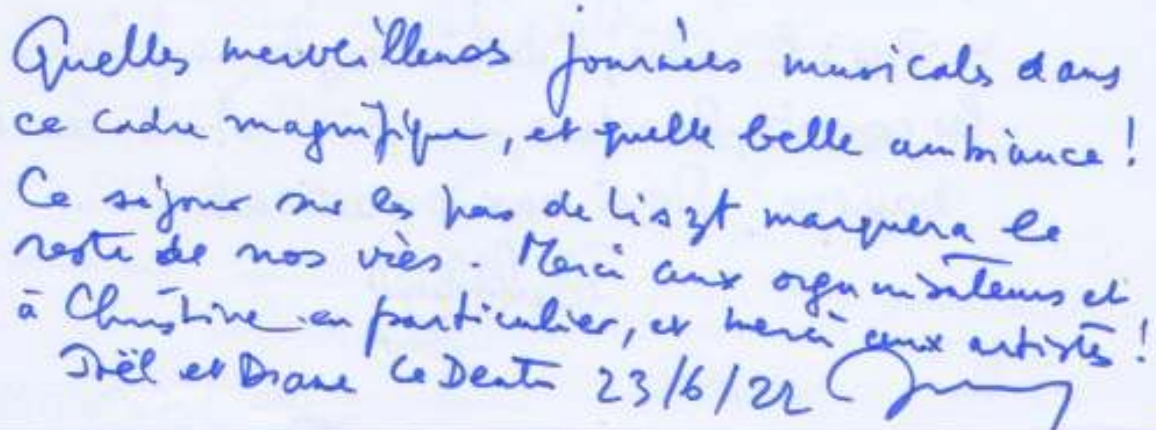 Quelles merveilleuses journées musicales dans
ce cadre magnifique, et quelle belle ambiance !
Ce séjour sur les pas de Liszt marquera le
reste de nos vies. Merci aux organisateurs et
à Christine en particulier, et merci aux artistes !
Joël et Diane Le Dentu 23/6/22